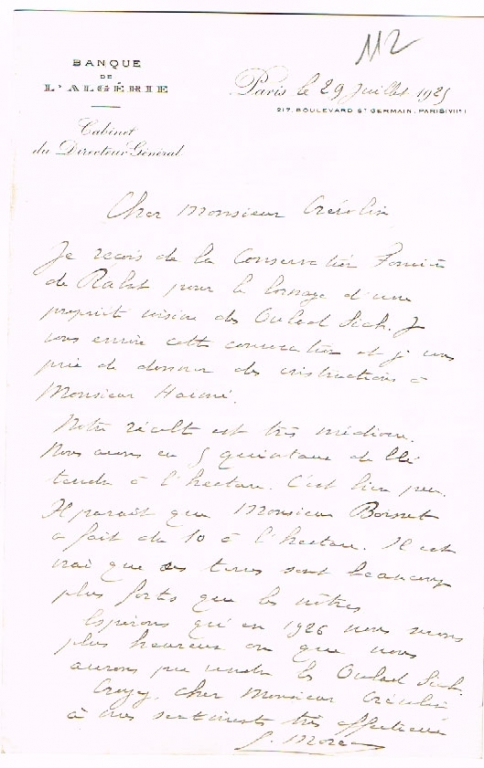 112
BANQUE
DE
L'ALGÉRIE
Paris le 29 Juillet 1925
217, BOULEVARD ST GERMAIN. PARIS (VIIe)
Cabinet
du Directeur Général
Cher Monsieur
Je reçois de la Conservation Foncière
de Rabat pour le bornage d'une
propriété voisine des Ouled Sich. Je
vous envoie cette convocation et je vous
prie de donner des instructions à
Monsieur
Notre récolte est très médiocre.
Nous avons eu 5 quintaux de blé
tendre à l'hectare. C'est bien peu.
Il paraît que Monsieur Bosnet
a fait du 10 à l'hectare. Il est
vrai que ses terres sont beaucoup
plus fortes que les nôtres
Espérons qu'en 1926 nous serons
plus heureux ou que nous
aurons pu vendre les Ouled Sich.
Croyez, cher Monsieur
à mes sentiments très affectueux